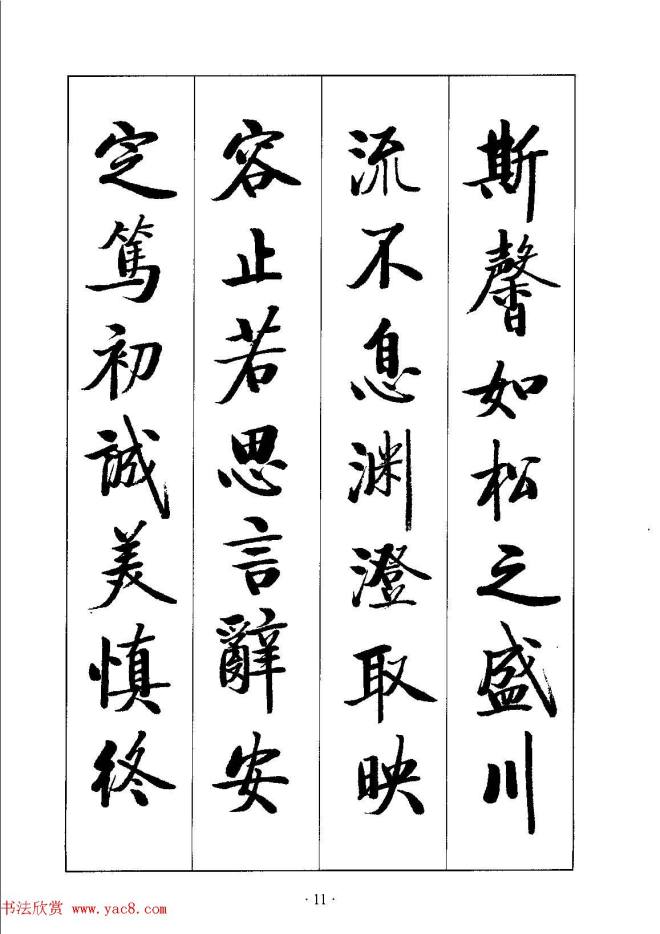 斯馨如松之盛川
流不息渊澄取映
容止若思言辭安
定篤初誠美慎終
·11·
书法欣赏 www.yac8.com